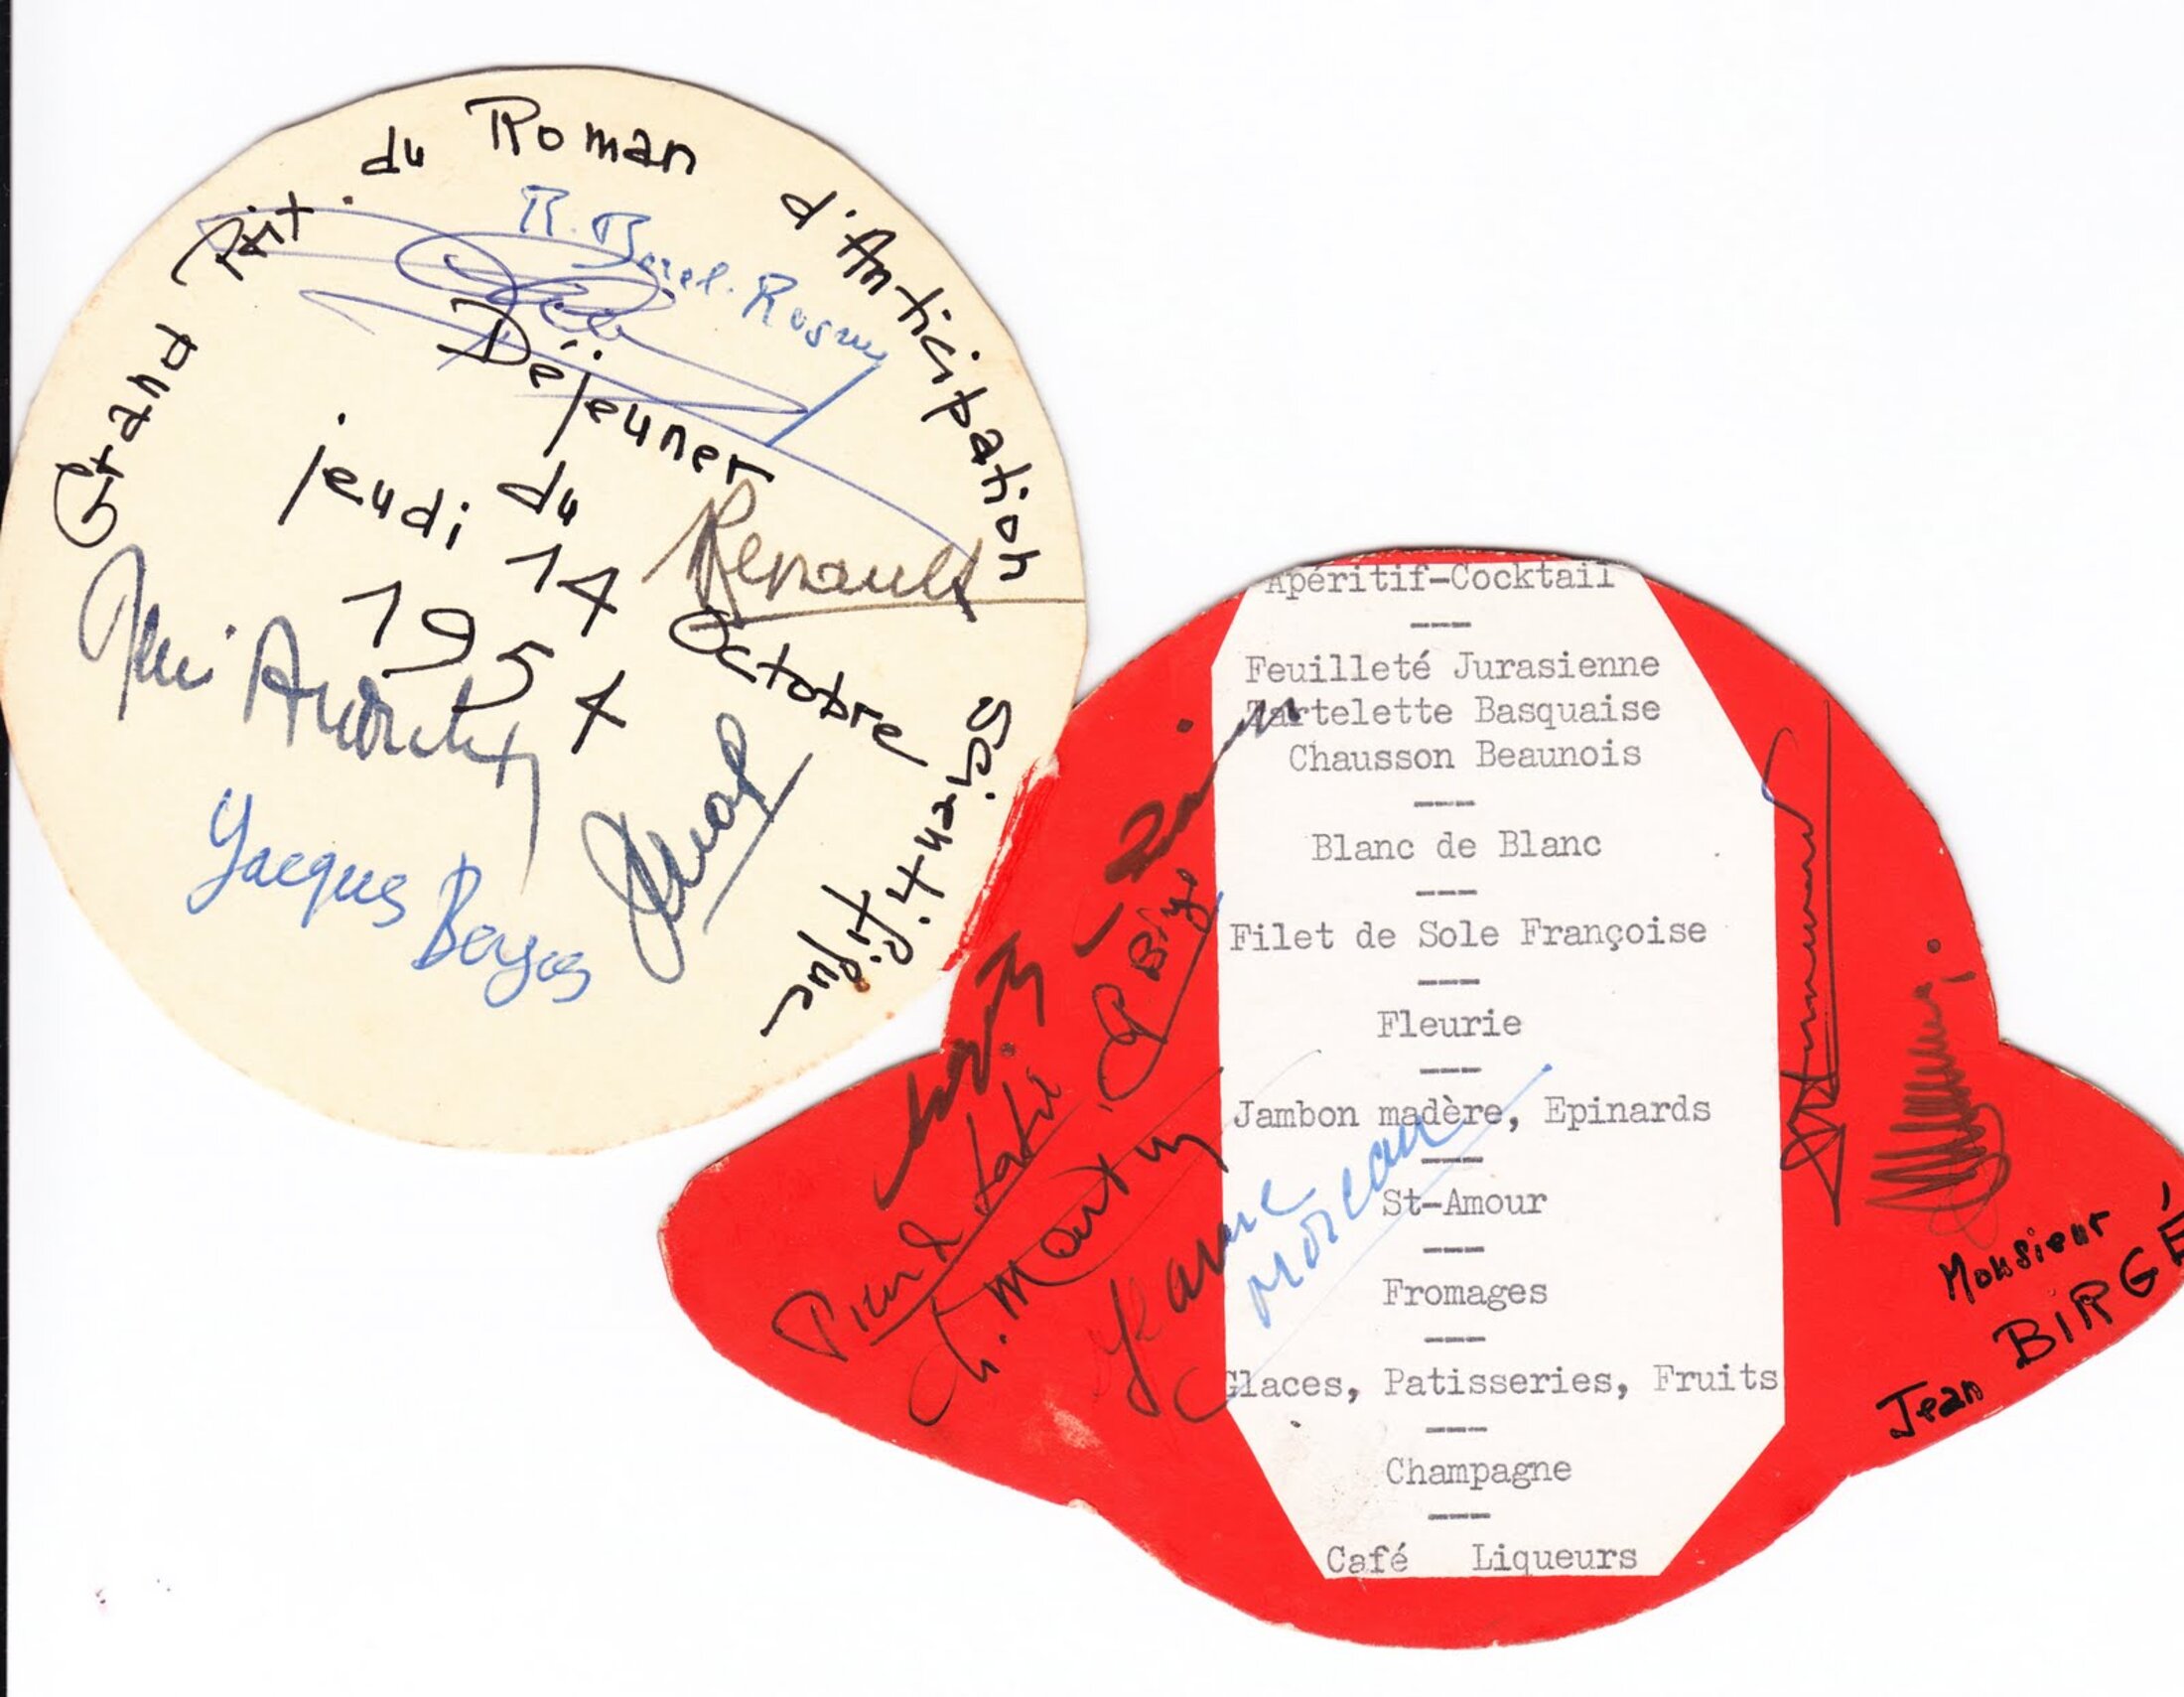 Grand Prix du Roman d'Anticipation Scientifique
R. Borel-Rosny
Déjeuner
du
jeudi 14 Octobre
1954
Renault
Jacques Bergos
Apéritif-Cocktail
Feuilleté Jurasienne
Tartelette Basquaise
Chausson Beaunois
Blanc de Blanc
Filet de Sole Françoise
Fleurie
Jambon madère, Epinards
St-Amour
Fromages
Glaces, Patisseries, Fruits
Champagne
Café Liqueurs
Ch. Martin
Jeanne
Moreau
Monsieur
Jean BIRGÉ